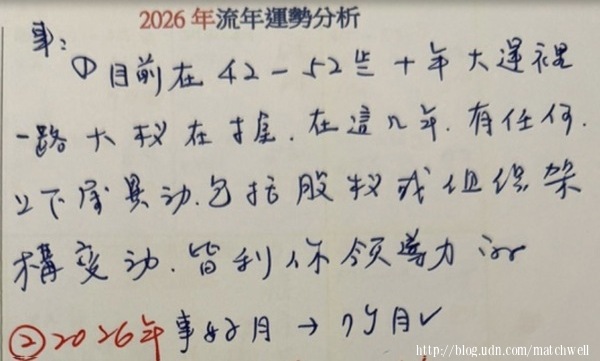 2026 年流年運勢分析
事:
① 目前在 42-52岁 十年大運裡
一路大权在握. 在這几年. 有任何.
上下层異动. 包括股权或组织架
構变动. 皆利你领導力
② 2026年 事好月 → 7月✓
http://blog.udn.com/matchwell